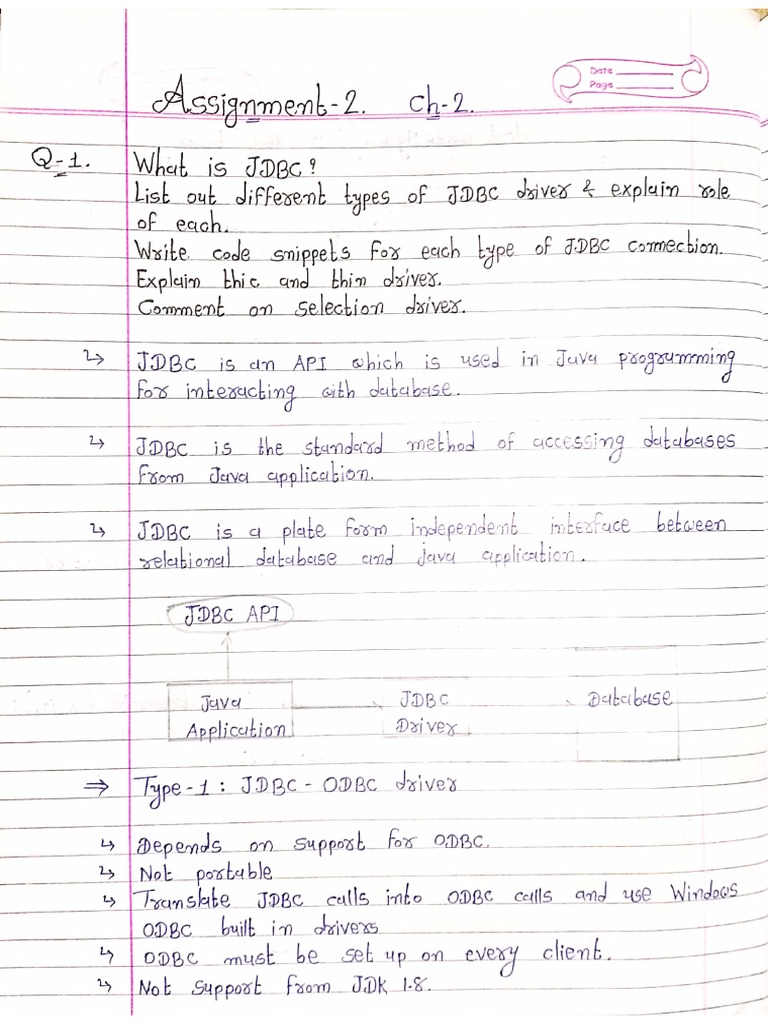 Date
Page
Assignment-2. Ch-2.
Q-1. What is JDBC?
List out different types of JDBC driver & explain role
of each.
Write code snippets for each type of JDBC connection.
Explain thic and thin driver.
Comment on selection driver.
JDBC is an API which is used in Java programming
for interacting with database.
JDBC is the standard method of accessing databases
from Java application.
JDBC is a plate form independent interface between
relational database and java application.
JDBC API
Java JDBC Database
Application Driver
⇒ Type-1 : JDBC - ODBC driver
↳ Depends on support for ODBC.
↳ Not portable
↳ Translate JDBC calls into ODBC calls and use Windows
ODBC built in drivers
↳ ODBC must be set up on every client.
↳ Not support from JDK 1.8.